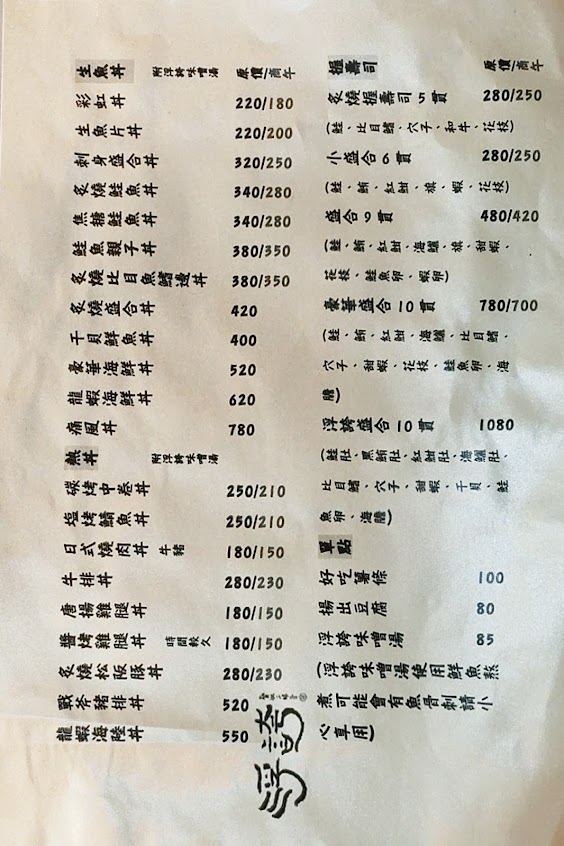 生魚丼 附浮誇味噌湯 原價/商午
彩虹丼 220/180
生魚片丼 220/200
刺身盛合丼 320/250
炙燒鮭魚丼 340/280
焦糖鮭魚丼 340/280
鮭魚親子丼 380/350
炙燒比目魚鰭邊丼 380/350
炙燒盛合丼 420
干貝鮮魚丼 400
豪華海鮮丼 520
龍蝦海鮮丼 620
痛風丼 780
熱丼 附浮誇味噌湯
碳烤中卷丼 250/210
塩烤鯖魚丼 250/210
日式燒肉丼 牛豬 180/150
牛排丼 280/230
唐揚雞腿丼 180/150
醬烤雞腿丼 時間較久 180/150
炙燒松阪豚丼 280/230
戰斧豬排丼 520
龍蝦海陸丼 550
握壽司 原價/商午
炙燒握壽司5貫 280/250
(鮭、比目鰭、穴子、和牛、花枝)
小盛合6貫 280/250
(鮭、鮪、紅魽、旗、蝦、花枝)
盛合9貫 480/420
(鮭、鮪、紅魽、海鱺、旗、甜蝦、
花枝、鮭魚卵、蝦卵)
豪華盛合10貫 780/700
(鮭、鮪、紅魽、海鱺、比目鰭、
穴子、甜蝦、花枝、鮭魚卵、海
膽)
浮誇盛合10貫 1080
(鮭肚、黑鮪肚、紅魽肚、海鱺肚、
比目鰭、穴子、甜蝦、干貝、鮭
魚卵、海膽)
單點
好吃薯條 100
揚出豆腐 80
浮誇味噌湯 85
(浮誇味噌湯使用鮮魚熬
煮可能會有魚骨刺請小
心享用)
浮誇